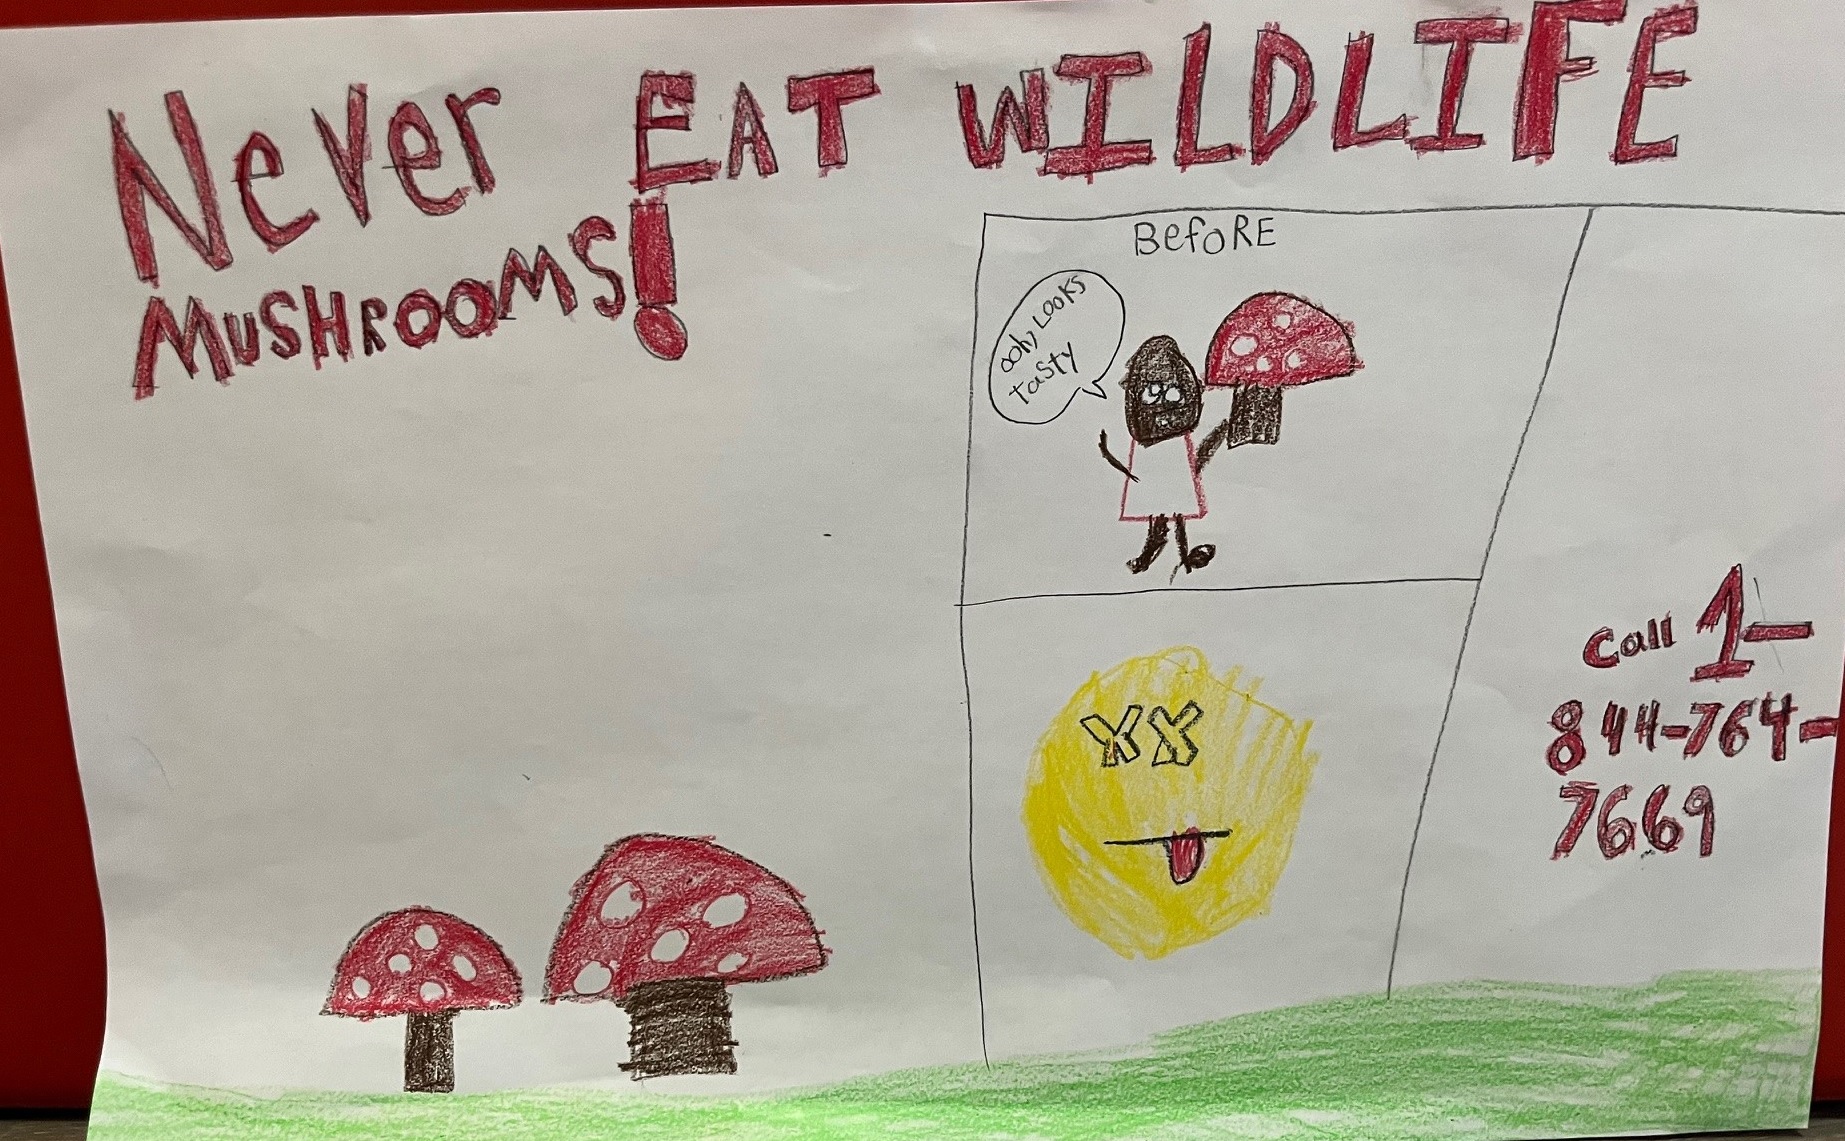 Never EAT WILDLIFE
MUSHROOMS!
BefoRE
ooh, Looks
tasty
Call 1-
844-764-
7669